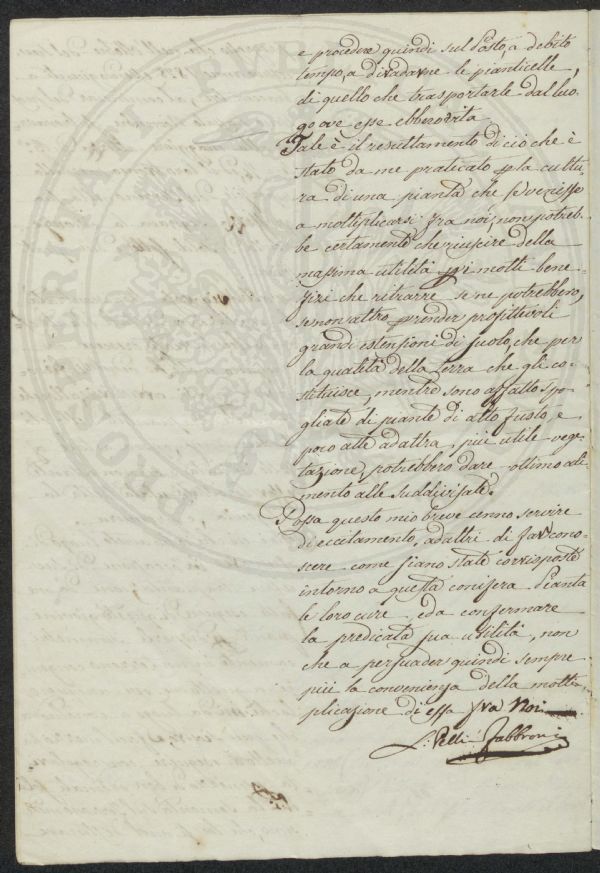 e procedere quindi sul posto, a debito
tempo, a diradarne le pianticelle,
di quello che trasportarle dal luo-
go ove esse ebbero vita
Tale è il resultamento di ciò che è
stato da me praticato p la cultu
ra di una pianta che se venisse
a moltiplicarsi fra noi, non potreb-
be certamente che riuscire della
massima utilità pi molti bene-
fizi che ritrarre se ne potrebbero,
se non altro p render profittevoli
grandi estensioni di suolo, che per
la qualità della terra che gli co-
stituisce, mentre sono affatto spo
gliate di piante di alto fusto, e
poco atte ad altra più utile vege-
tazione, potrebbero dare ottimo ali-
mento alle suddivisate.
Possa questo mio breve cenno servire
di eccitamento ad altri di far cono-
scere come siano state corrisposte
intorno a questa conifera Pianta
le loro cure, ed a confermare
la predicata sua utilità, non
che a persuader quindi sempre
più la convenienza della molti-
plicazione di essa fra Noi
L: Pelli Fabbroni